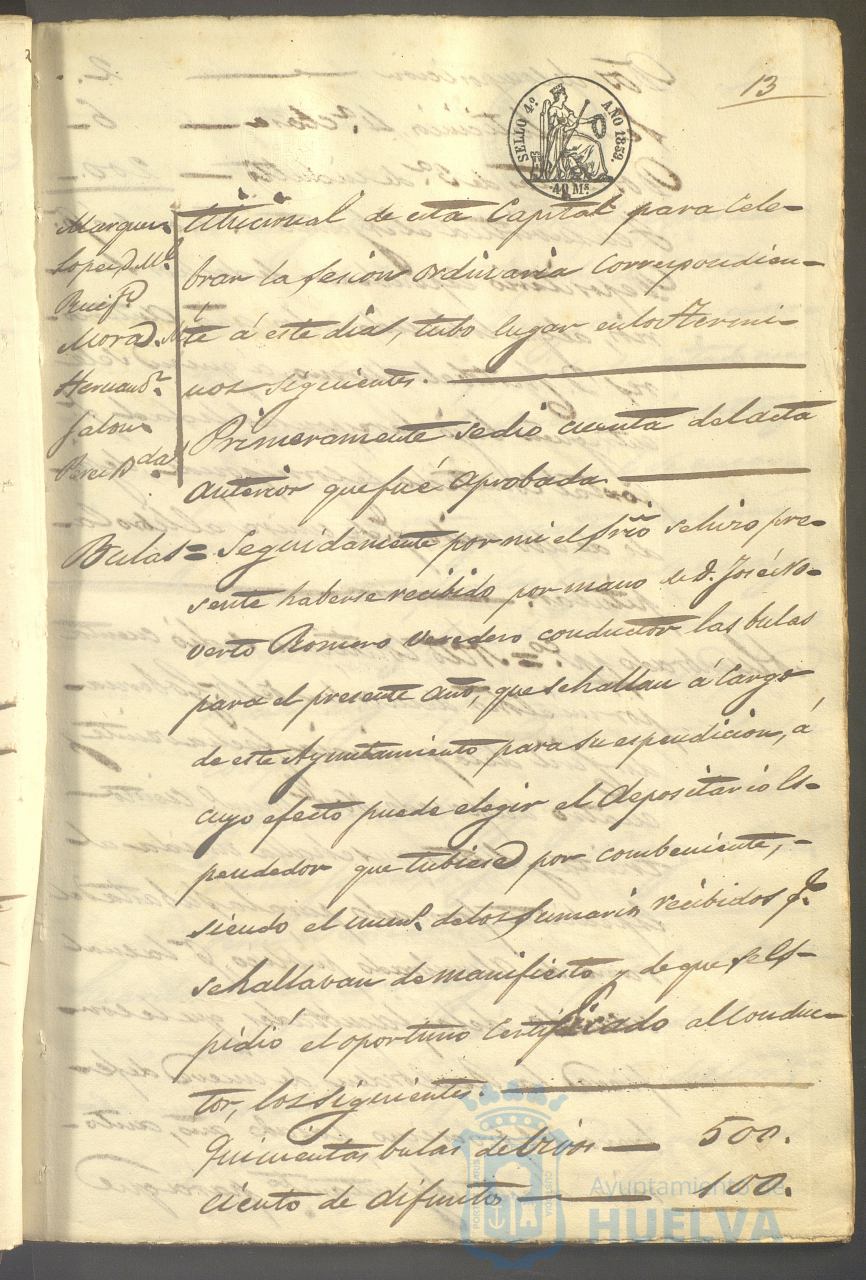 13
SELLO 4º AÑO 1859.
40 Ms
Marquez
Lopez D. Ml
Ruiz
Mora D. M
Hernandz
Jalon
Perez D
titucional de esta Capital para Cele-
brar la sesion ordinaria correspondien-
te á este dia, tubo lugar en los termi-
nos siguientes.
Primeramente se dio cuenta del acta
anterior que fué aprobada.
Bulas = Seguidamente por mi el Srio se hizo pre-
sente haberse recibido por mano de D. José No-
verto Romero Veredero conductor las bulas
para el presente año, que se hallan á cargo
de este Ayuntamiento para su espendicion, á
cuyo efecto puede elegir el depositario Es-
pendedor que tubiese por combeniente, -
siendo el num. de los Sumarios recibidos q.e
se hallavan de manifiesto y de que se es-
pidió el oportuno Certificado al conduc-
tor, los siguientes.
Quinientas bulas de vivos — 500.
ciento de difuntos — 100.
Ayuntamiento de
HUELVA